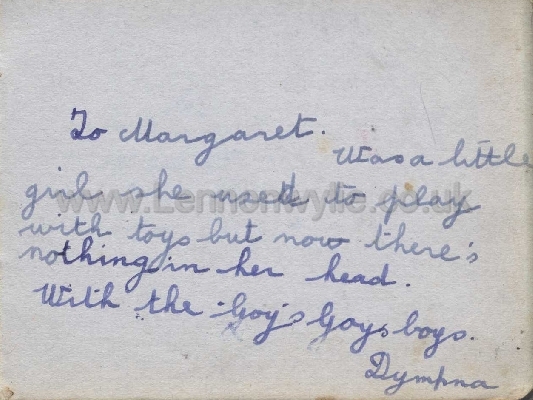 To Margaret.
Was a little
girl she used to play
with toys but now there's
nothing in her head.
With the "Goys Goys boys.
Dympna
www.Lennonwylie.co.uk